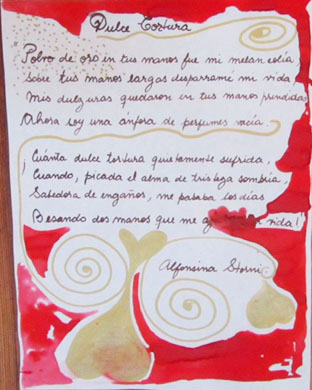 Dulce Tortura
"Polvo de oro en tus manos fue mi melancolía,
Sobre tus manos largas desparramé mi vida
Mis dulzuras quedaron en tus manos prendidas
Ahora soy una ánfora de perfumes vacía.
¡Cuánta dulce tortura quietamente sufrida,
Cuando, picada el alma de tristeza sombría,
Sabedora de engaños, me pasaba los días
Besando dos manos que me vida!"
Alfonsina Storni